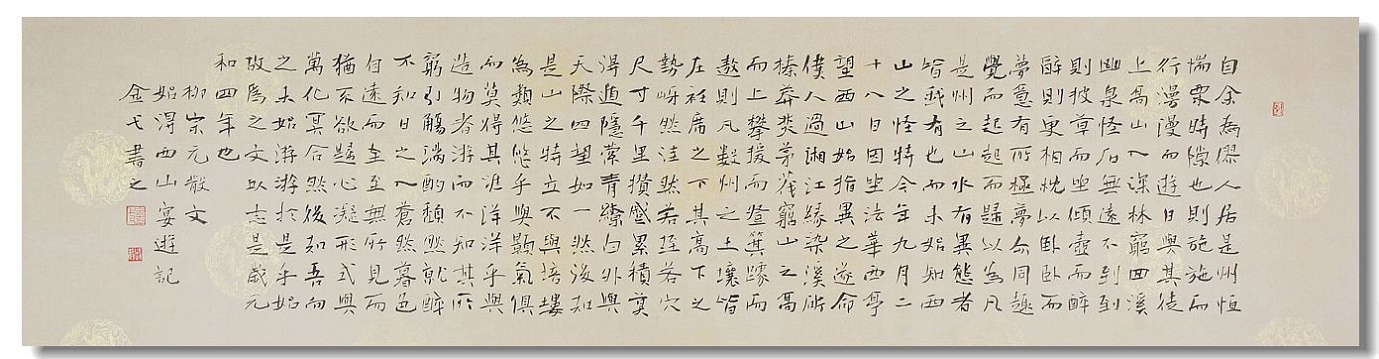 自余為僇人居是州恒
惴栗時隙也則施施而
行漫漫而遊日與其徒
上高山入深林窮回溪
幽泉怪石無遠不到到
則披草而坐傾壺而醉
醉則更相枕以臥臥而
夢意有所極夢亦同趣
覺而起起而歸以為凡
是州之山水有異態者
皆我有也而未始知西
山之怪特今年九月二
十八日因坐法華西亭
望西山始指異之遂命
僕人過湘江緣染溪斫
榛莽焚茅茷窮山之高
而上攀援而登箕踞而
遨則凡數州之土壤皆
在衽席之下其高下之
勢岈然洼然若垤若穴
尺寸千里攢蹙累積莫
得遁隱縈青繚白外與
天際四望如一然後知
是山之特立不與培塿
為類悠悠乎與顥氣俱
而莫得其涯洋洋乎與
造物者游而不知其所
窮引觴滿酌頹然就醉
不知日之入蒼然暮色
自遠而至至無所見而
猶不欲歸心凝形式與
萬化冥合然後知吾向
之未始游游於是乎始
故為之文以志是歲元
和四年也
柳宗元散文
始得西山宴遊記
金弋書之